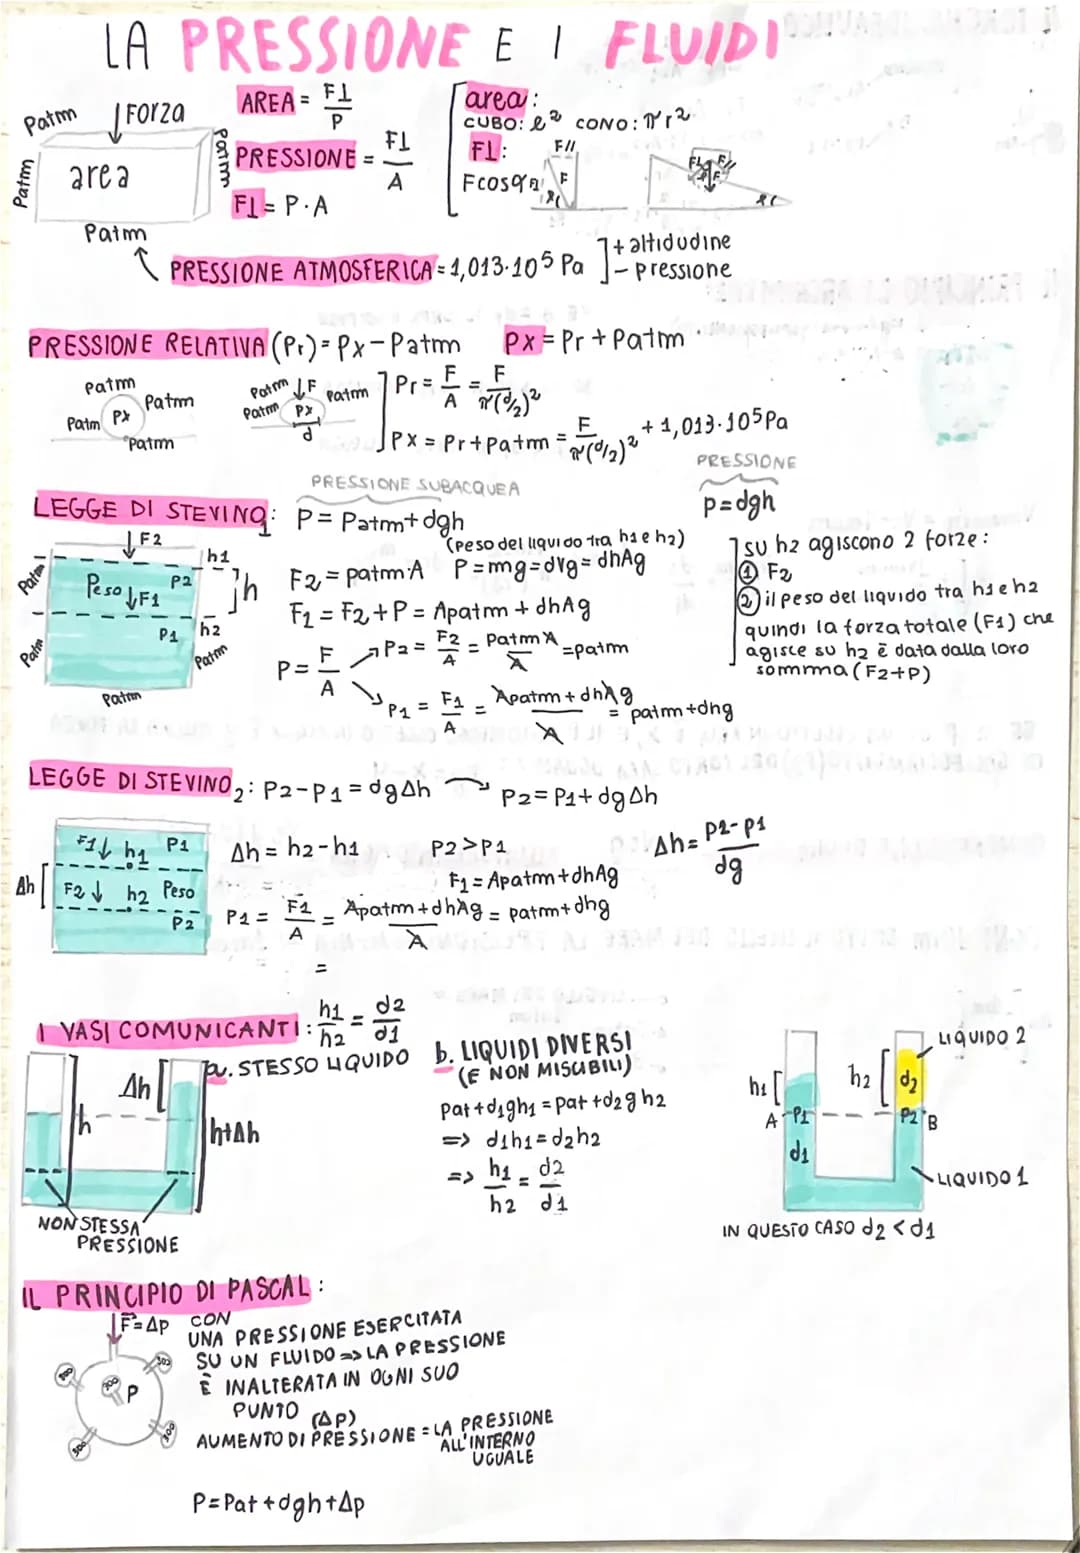 LA PRESSIONE E I FLUIDI
Patm
FORZA
Patm
area
Patm
Patm
AREA = F⊥/P
PRESSIONE = F⊥/A
F⊥ = P·A
area:
CUBO: l² CONO: πr²
F⊥:
F//
Fcosα
F
α
F⊥ F//
F
α
PRESSIONE ATMOSFERICA = 1,013·10⁵ Pa
+ altidudine
- pressione
PRESSIONE RELATIVA (Pr) = Px - Patm
Px = Pr + Patm
Patm
Patm Px Patm
Patm
Patm F Patm
Patm Px
d
Pr = F/A = F/π(d/2)²
Px = Pr + Patm = F/π(d/2)² + 1,013·105Pa
PRESSIONE SUBACQUEA
PRESSIONE
LEGGE DI STEVINO1: P = Patm + dgh
p = dgh
(peso del liquido tra h1 e h2)
F2
h1
Patm
Peso F1
P2
h
P1
h2
Patm
Patm
Patm
F2 = patm·A P = mg = dVg = dhAg
F1 = F2 + P = Apatm + dhAg
P = F/A
P2 = F2/A = Patm A/A = patm
P1 = F1/A = Apatm + dhAg/A = patm + dhg
su h2 agiscono 2 forze:
① F2
② il peso del liquido tra h1 e h2
quindi la forza totale (F1) che
agisce su h2 è data dalla loro
somma (F2+P)
LEGGE DI STEVINO2: P2 - P1 = dgΔh
P2 = P1 + dgΔh
F1 h1 P1
Δh
F2 h2 Peso
P2
Δh = h2 - h1
P2 > P1
Δh = p2 - p1/dg
F1 = Apatm + dhAg
P1 = F1/A = Apatm + dhAg/A = patm + dhg
=
I VASI COMUNICANTI: h1/h2 = d2/d1
a. STESSO LIQUIDO
Δh
h
h+Δh
NON STESSA
PRESSIONE
b. LIQUIDI DIVERSI
(E NON MISCIBILI)
pat + d1gh1 = pat + d2gh2
=> d1h1 = d2h2
=> h1/h2 = d2/d1
LIQUIDO 2
h1
h2
d2
A P1
P2 B
d1
LIQUIDO 1
IN QUESTO CASO d2 < d1
IL PRINCIPIO DI PASCAL:
F = Δp
P
CON
UNA PRESSIONE ESERCITATA
SU UN FLUIDO => LA PRESSIONE
È INALTERATA IN OGNI SUO
PUNTO
(Δp)
AUMENTO DI PRESSIONE = LA PRESSIONE
ALL'INTERNO
UGUALE
P = Pat + dgh + Δp